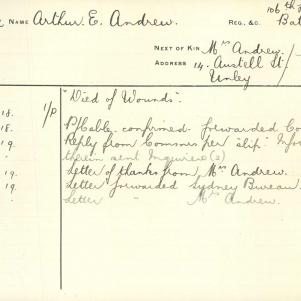 NAME Arthur E. Andrew. REG. &C. 106th
Bat
NEXT OF KIN Mrs Andrew.
ADDRESS 14. Austell St.
Unley
1/P "Died of Wounds".
18. P/Cable confirmed. forwarded Co
19. Reply from Commrs. per "slip" Info
therein sent Inquirer (2)
19. Letter of thanks from Mrs Andrew.
19. Letter forwarded Sydney Bureau.
Letter " Mrs Andrew.